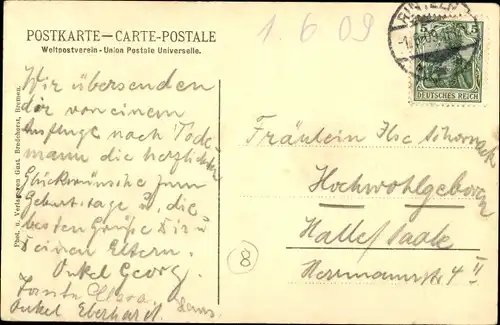 POSTKARTE — CARTE-POSTALE
Weltpostverein - Union Postale Universelle.
1. 6. 09
RINTELN
5 5
DEUTSCHES REICH
Phot. u. Verlag von Gust. Bendehorst, Bremen.
Wir übersenden
dir von einem
Ausfluge nach Tode-
mann die herzlichsten
Glückwünsche zum
Geburtstage u. die
besten Grüße Dir u.
Deinen Eltern.
Onkel Georg.
Tante
Onkel Eberhard.
Fräulein Ilse
Hochwohlgeboren
Halle/Saale
Herrmannstr. 4 II
8